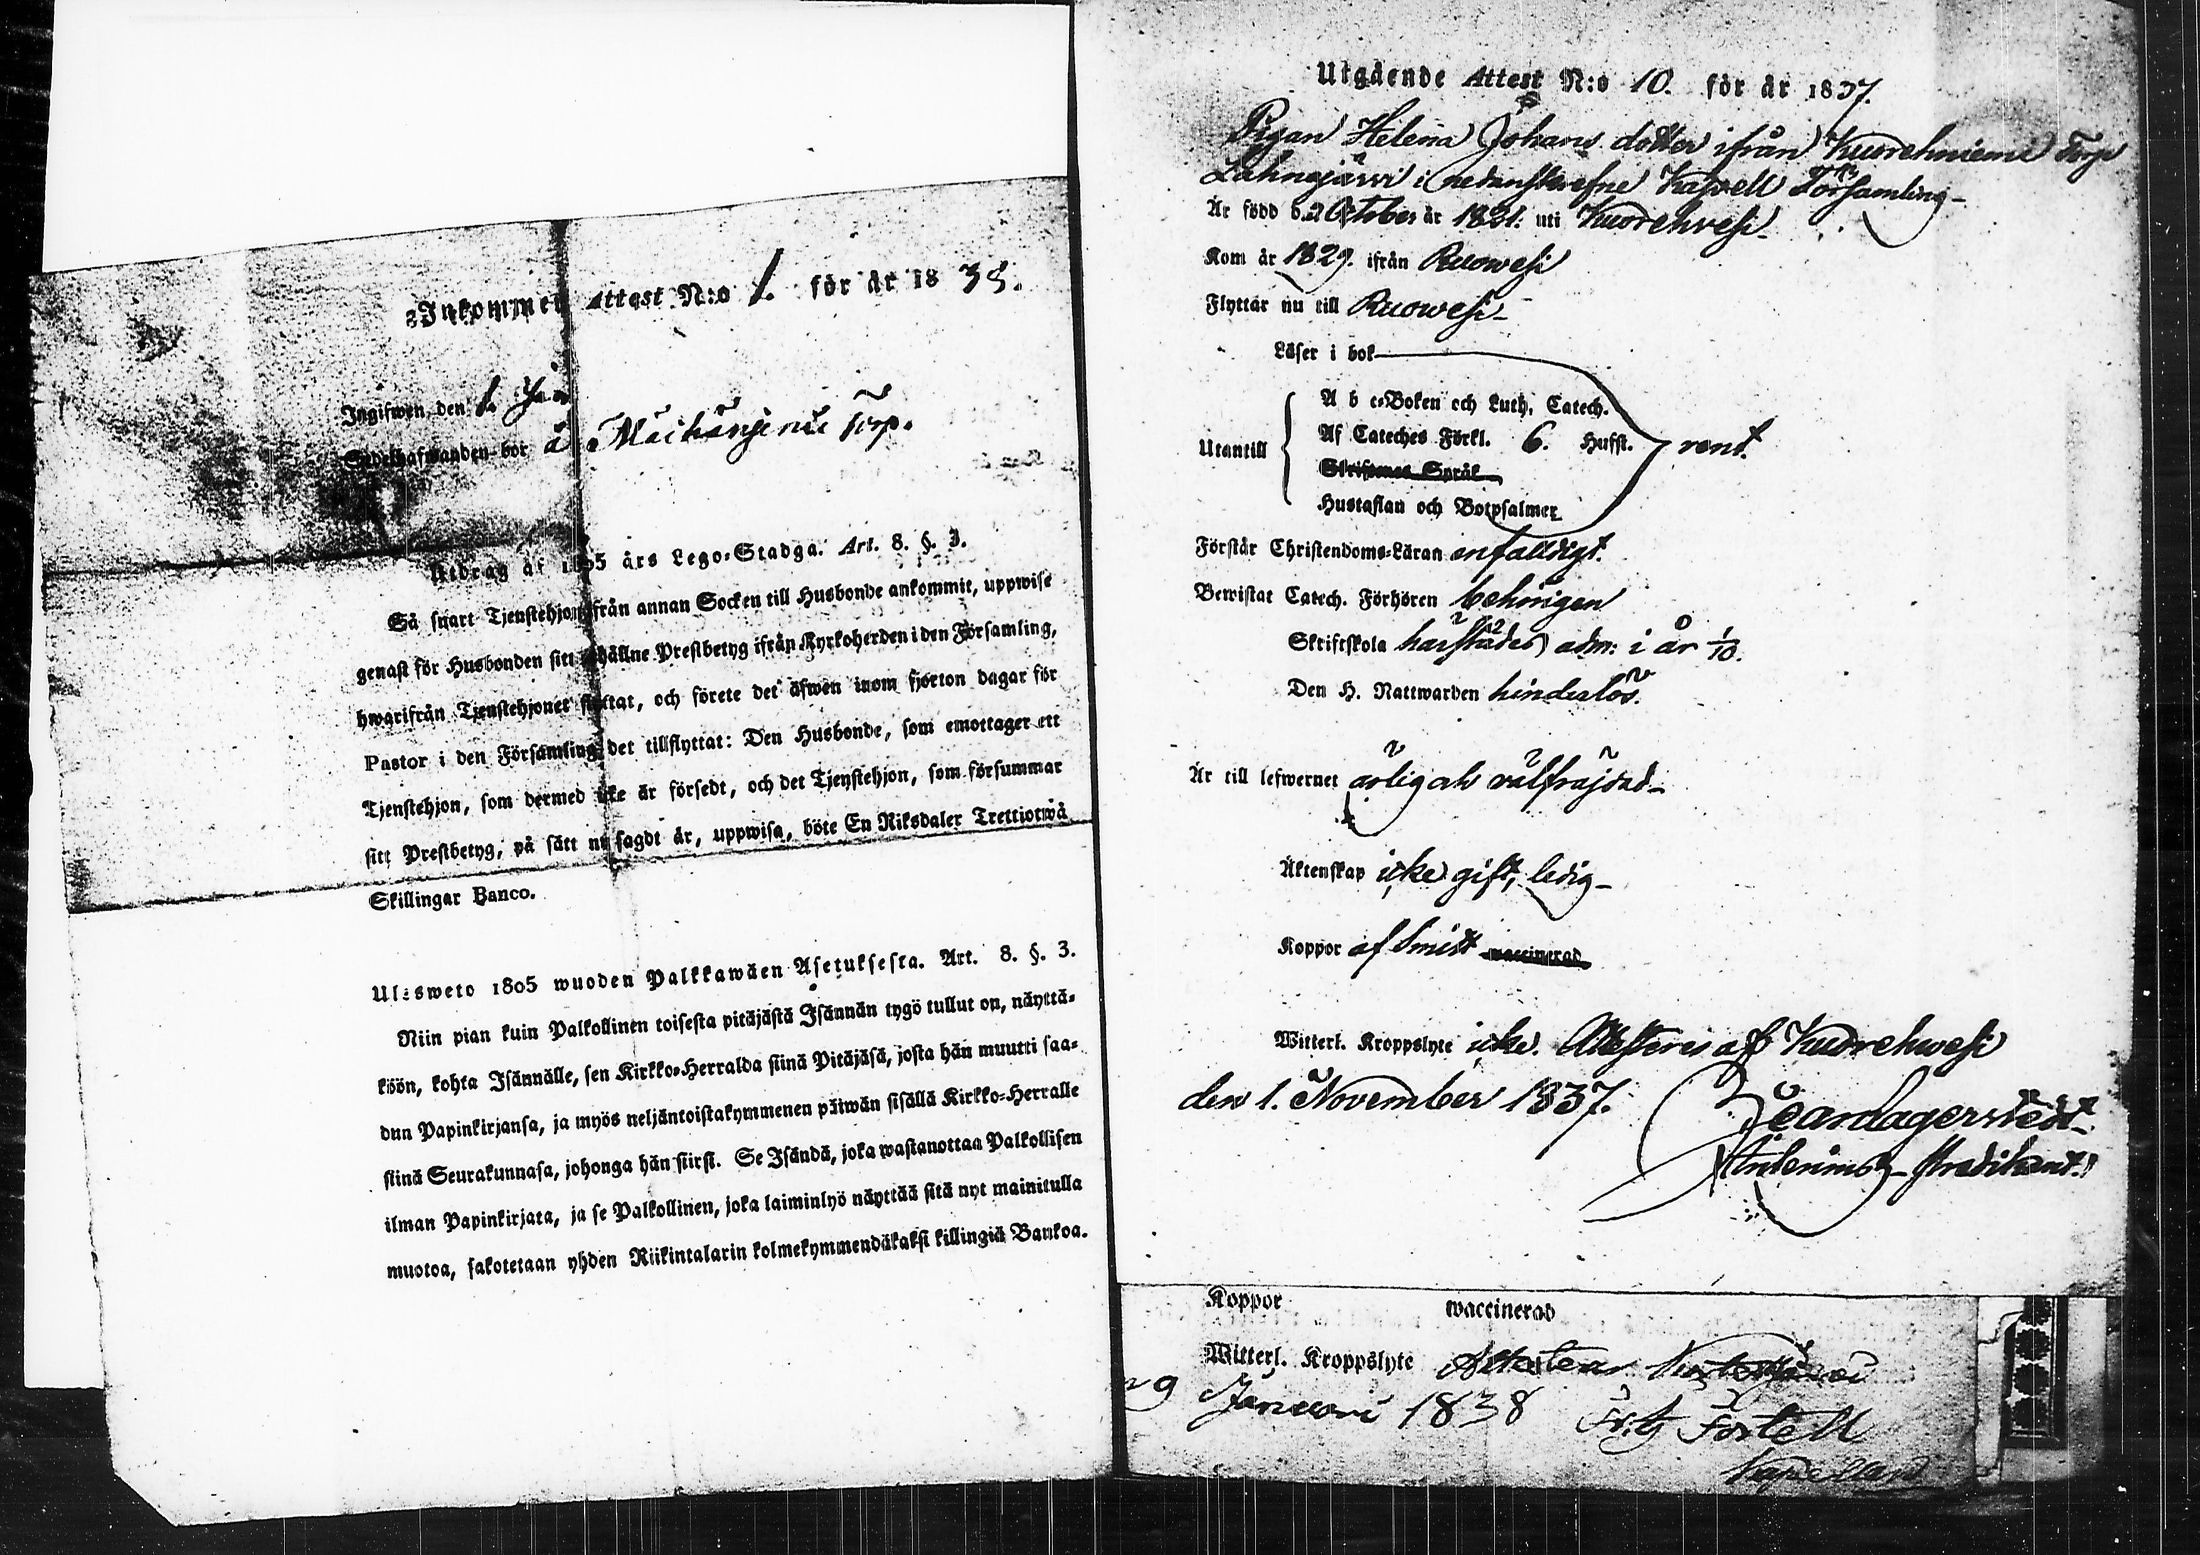 Inkommen Attest N:o 1. för år 1838.
Ingifwen den 1. Jan
Sedelhafwanden bor å Torp.
Utdrag af 1805 års Lego-Stadga. Art. 8. §. 3.
Så snart Tjenstehjon ifrån annan Socken till Husbonde ankommit, uppwise
genast för Husbonden sitt erhållne Prestbetyg ifrån Kyrkoherden i den Församling,
hwarifrån Tjenstehjonet flyttat, och förete det äfwen inom fjorton dagar för
Pastor i den Församling det tillflyttat: Den Husbonde, som emottager ett
Tjenstehjon, som dermed icke är försedt, och det Tjenstehjon, som försummar
sitt Prestbetyg, på sätt nu sagdt är, uppwisa, böte En Riksdaler Trettiotwå
Skillingar Banco.
Ulosweto 1805 wuoden Palkkawäen Asetuksesta. Art. 8. §. 3.
Niin pian kuin Palkollinen toisesta pitäjästä Isännän tygö tullut on, näyttä-
köön, kohta Isännälle, sen Kirkko-Herralda siinä Pitäjäsä, josta hän muutti saa-
dun Papinkirjansa, ja myös neljäntoistakymmenen päiwän sisällä Kirkko-Herralle
siinä Seurakunnasa, johonga hän siirsi. Se Isändä, joka wastanottaa Palkollisen
ilman Papinkirjata, ja se Palkollinen, joka laiminlyö näyttää sitä nyt mainitulla
muotoa, sakotetaan yhden Riikintalarin kolmekymmendäkaksi killingiä Bankoa.
Utgående Attest N:o 10. för år 1837.
Pigan Helena Johans dotter ifrån Kuorehniemi Torp
Lahnajärwi i nedanskrefne Kapell Församling
Är född d. 2 October år 1821. uti Kuorehvesi
Kom år 1829. ifrån Ruowesi
Flyttar nu till Ruowesi
Läser i bok
Utantill
A b c-Boken och Luth. Catech.
Af Cateches Förkl. 6. Hufst.
Skriftenes Språk
Hustaflan och Botpsalmer
rent.
Förstår Christendoms-Läran enfalldigt.
Bewistat Catech. Förhören behörigen
Skriftskola härstädes adm: i år 1/10.
Den H. Nattwarden hinderlös.
Är till lefwernet ärlig och välfräjdad
Äktenskap icke gift, ledig
Koppor af Smitt waccinerad
Witterl. Kroppslyte icke. Attesteres af Kuorehwesi
den 1. November 1837.
Interims-Predikant.
Koppor waccinerad
Witterl. Kroppslyte
Januari 1838 Fortell
Kapellan